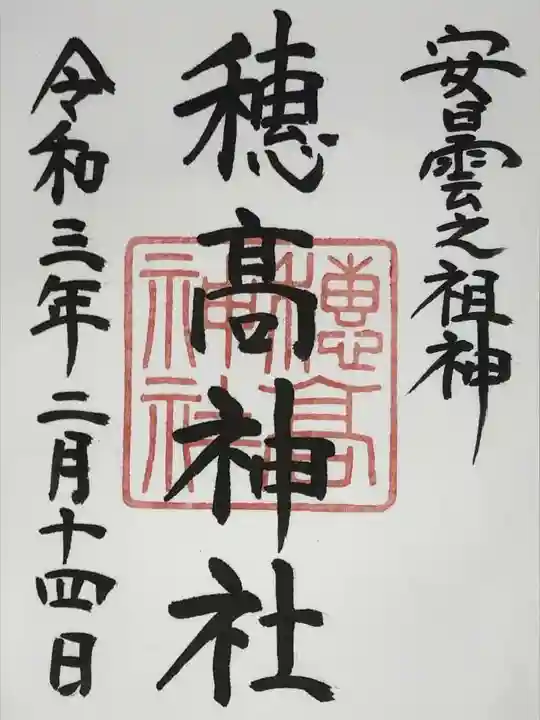 安曇之祖神
穂髙神社
穂髙
神社
令和三年二月十四日